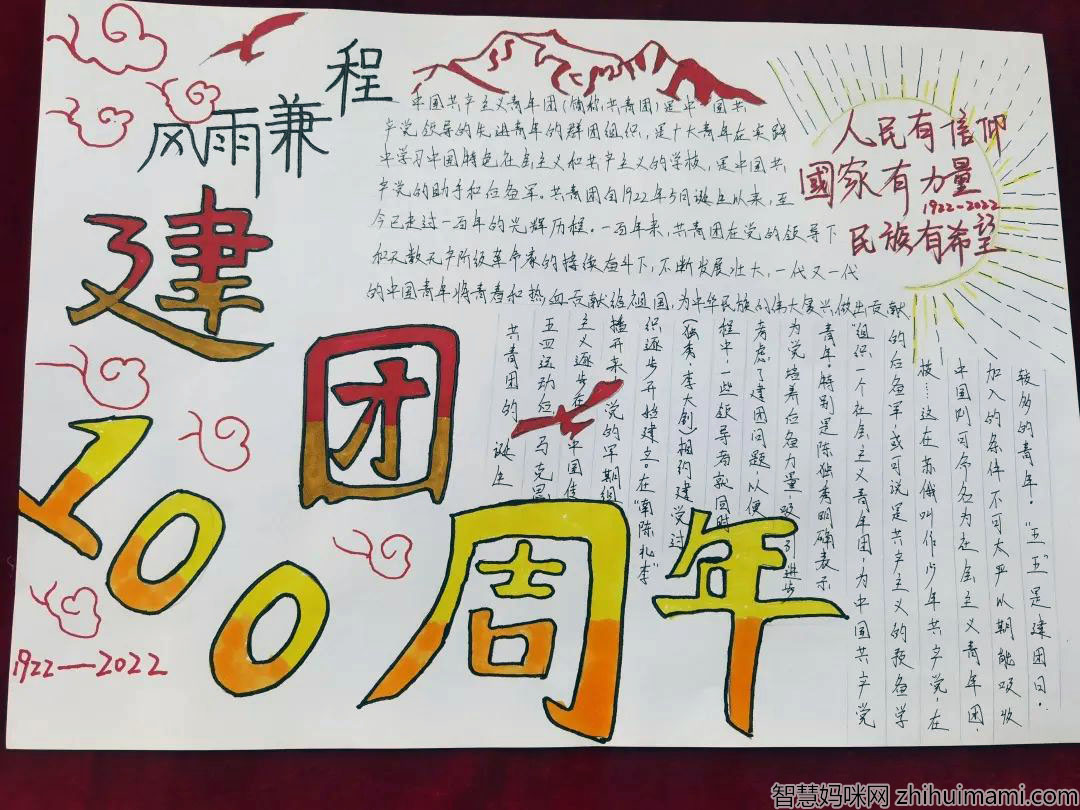 风雨兼程
建团
100周年
1922—2022
中国共产主义青年团(简称共青团)是中国共
产党领导的先进青年的群团组织,是广大青年在实践
中学习中国特色社会主义和共产主义的学校,是中国共
产党的助手和后备军。共青团自1922年5月诞生以来,至
今已走过一百年的光辉历程。一百年来,共青团在党的领导下
和无数无产阶级革命家的接续奋斗下,不断发展壮大,一代又一代
的中国青年将青春和热血贡献给祖国,为中华民族的伟大复兴做出贡献
人民有信仰
國家有力量
1922-2022
民族有希望
共青团的诞生
五四运动后,马克思
主义逐步在中国传
播开来,党的早期组
织逐步开始建立。在“南陈北李”
(独秀,李大钊)相约建党过
程中,一些领导者就同时
考虑了建团问题以便
为党培养后备力量,吸引进步
青年。特别是陈独秀明确表示
“组织一个社会主义青年团,为中国共产党
的后备军,或可说是共产主义的预备学
校……这在苏俄叫作少年共产党,在
中国则可命名为社会主义青年团,
加入的条件不可太严以期能吸收
较多的青年。“五五”是建团日。
智慧妈咪网 zhihuimami.com